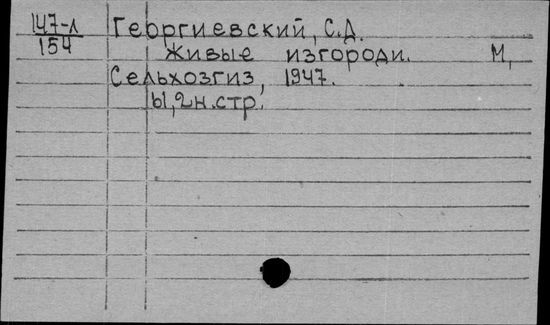 147-л Георгиевский, С.Д.
154
Живые изгороди. М,
Сельхозгиз, 1947.
61, 2 н.стр.